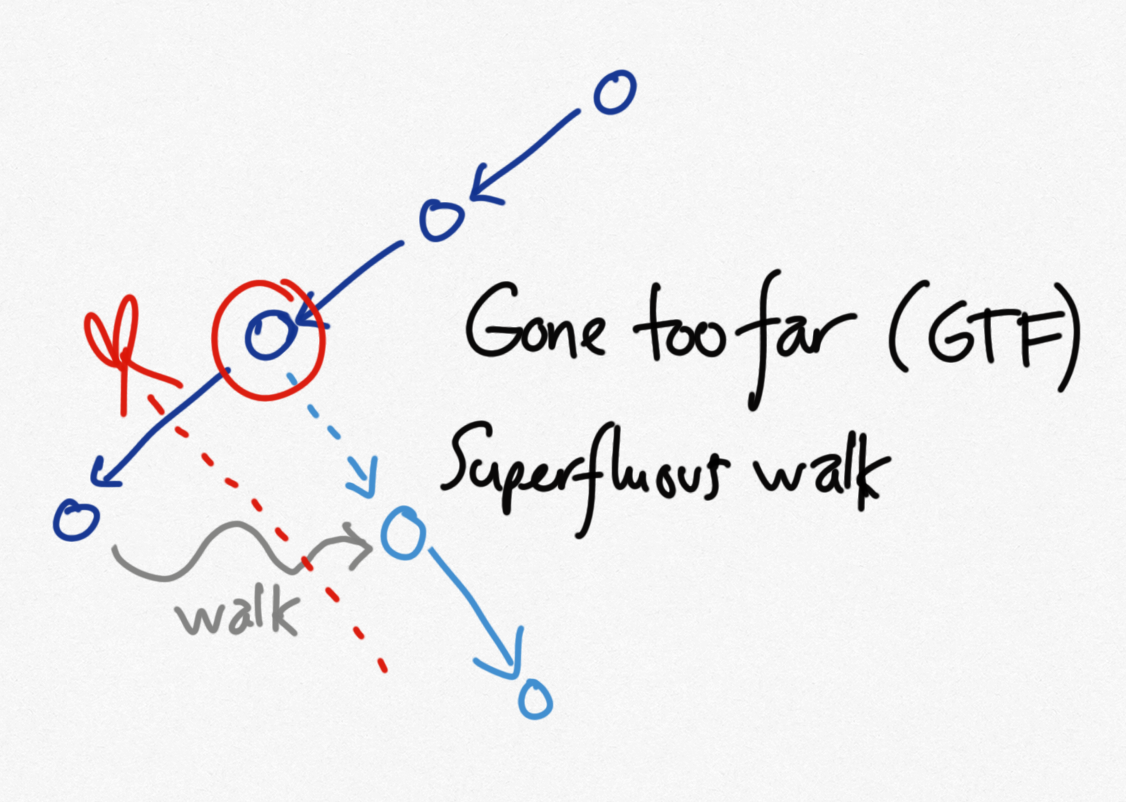 Gone too far (GTF)
Superfluous walk
walk